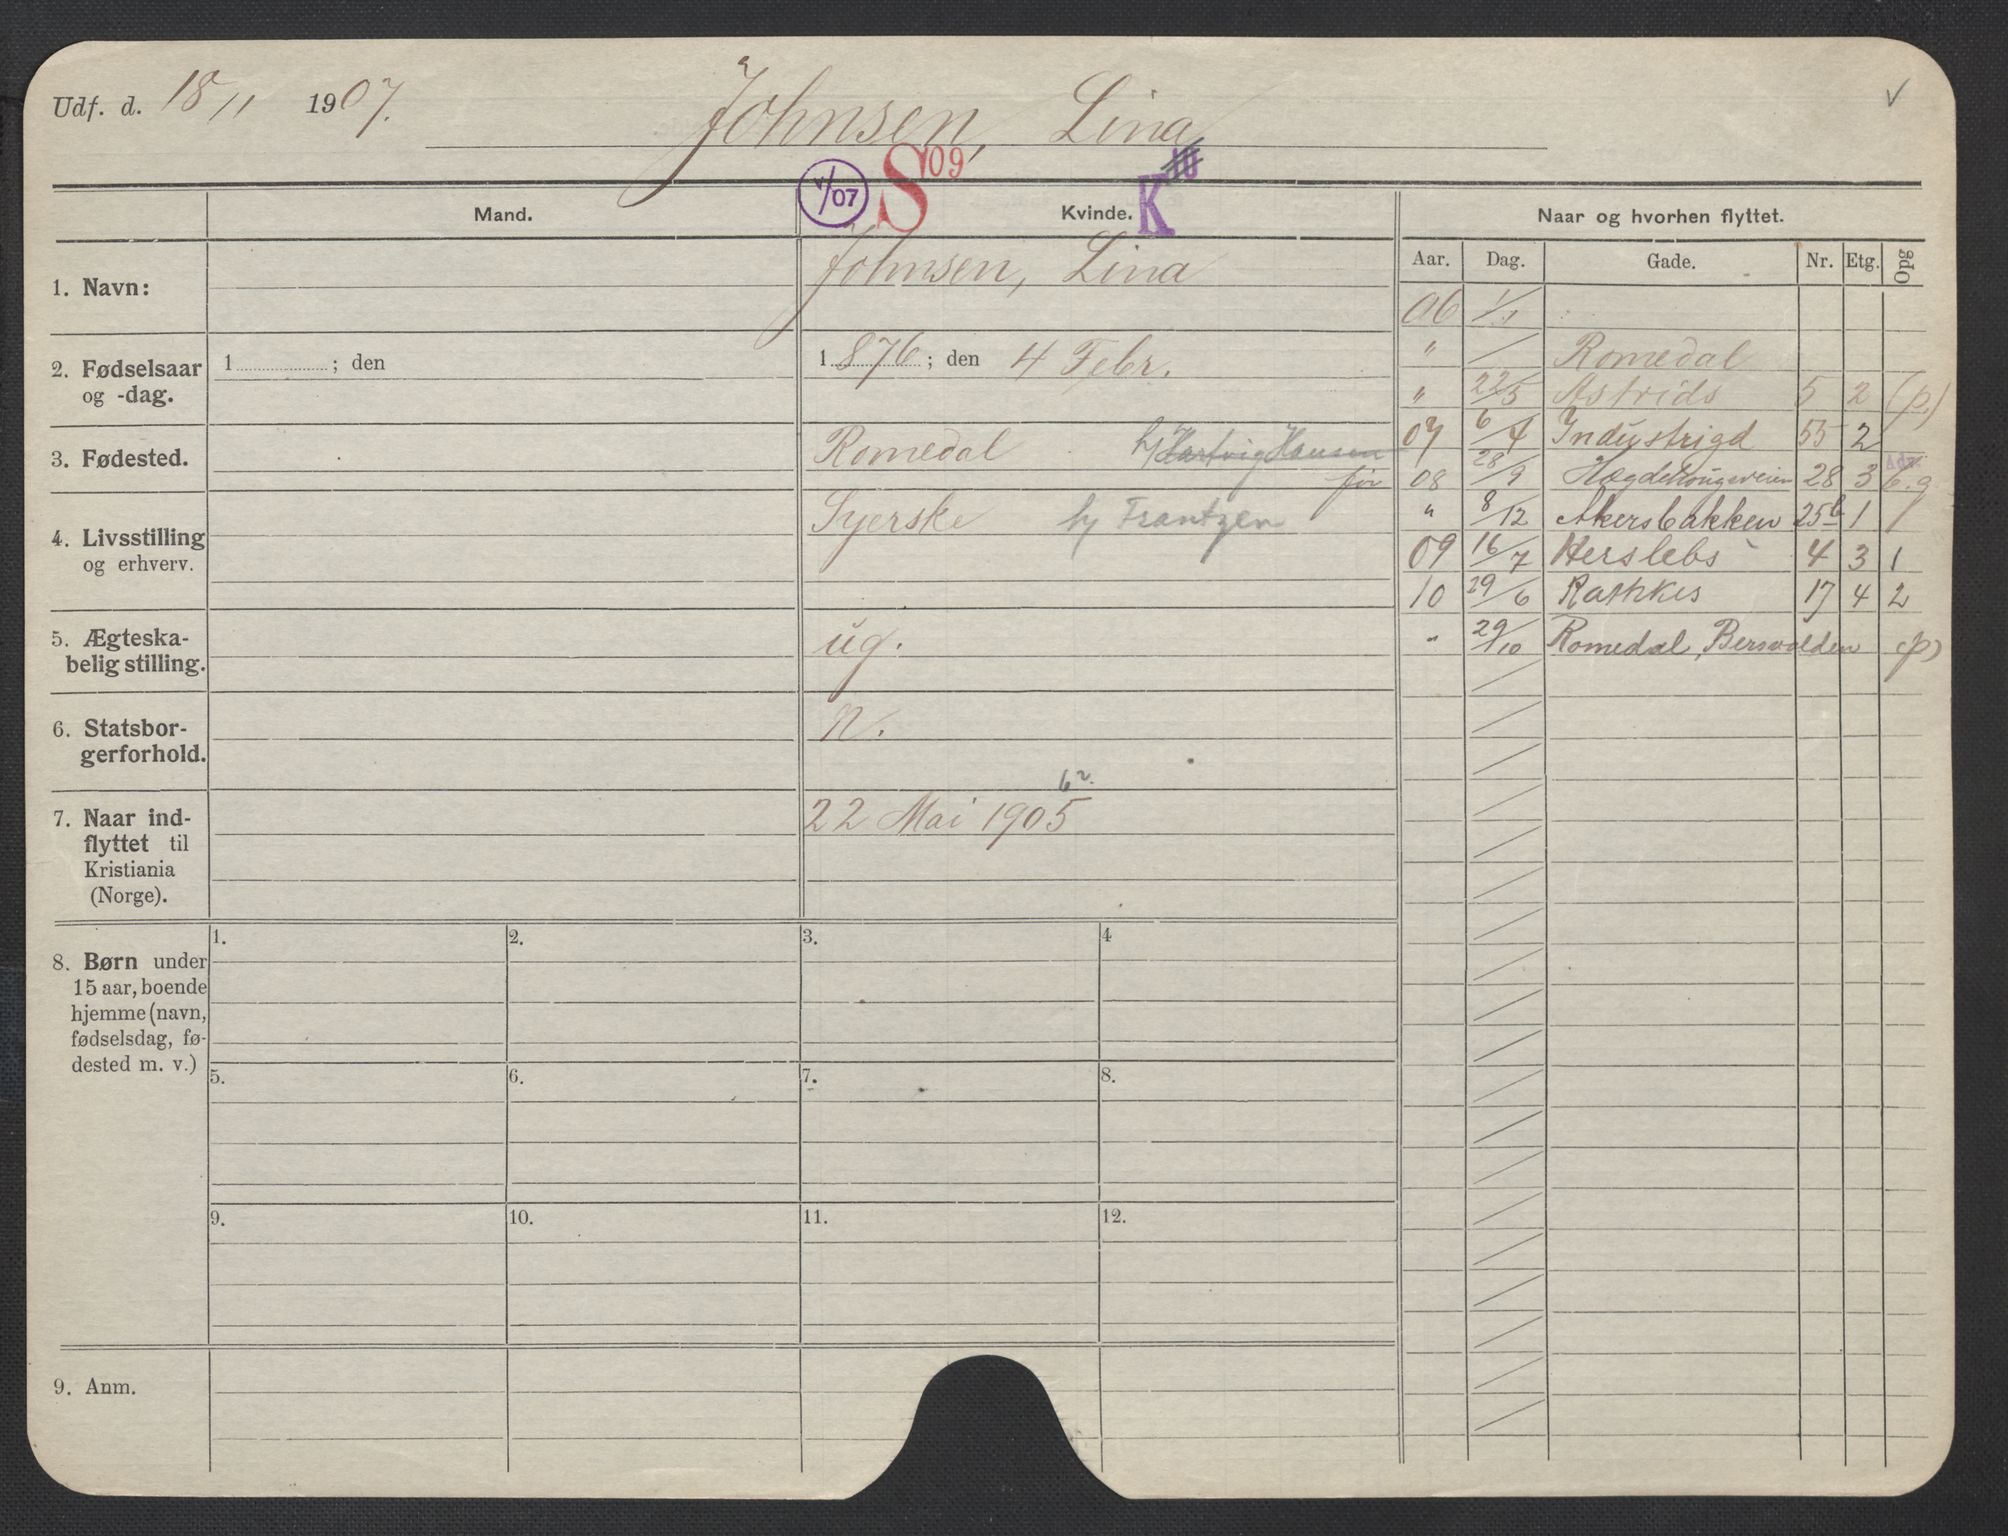 Udf. d. 18/11 1907. Johnsen, Lina
V/07 S 09 K 10
Mand. Kvinde. Naar og hvorhen flyttet.
Aar. Dag. Gade. Nr. Etg. Opg
1. Navn: Johnsen, Lina
2. Fødselsaar og -dag. 1 ; den 1 876 ; den 4 Febr.
3. Fødested. Romedal h/ Hartvig Hansen
før
4. Livsstilling og erhverv. Syerske hj Frantzen
5. Ægteska-
belig stilling. ug.
6. Statsbor-
gerforhold. n.
6
7. Naar ind-
flyttet til
Kristiania
(Norge). 22 Mai 1905
8. Børn under
15 aar, boende
hjemme (navn,
fødselsdag, fø-
dested m. v.)
1. 2. 3. 4
5. 6. 7. 8.
9. 10. 11. 12.
9. Anm.
06 1/1
" / Romedal
" 22/5 Astrids 5 2 (p.)
07 6/4 Industrigd 55 2
08 28/9 Hægdehougsveien 28 3
" 8/12 Akersbakken 25b 1 /
09 16/7 Herslebs 4 3 1
10 29/6 Rathkes 17 4 2
" 29/10 Romedal, Bersvolden (p)